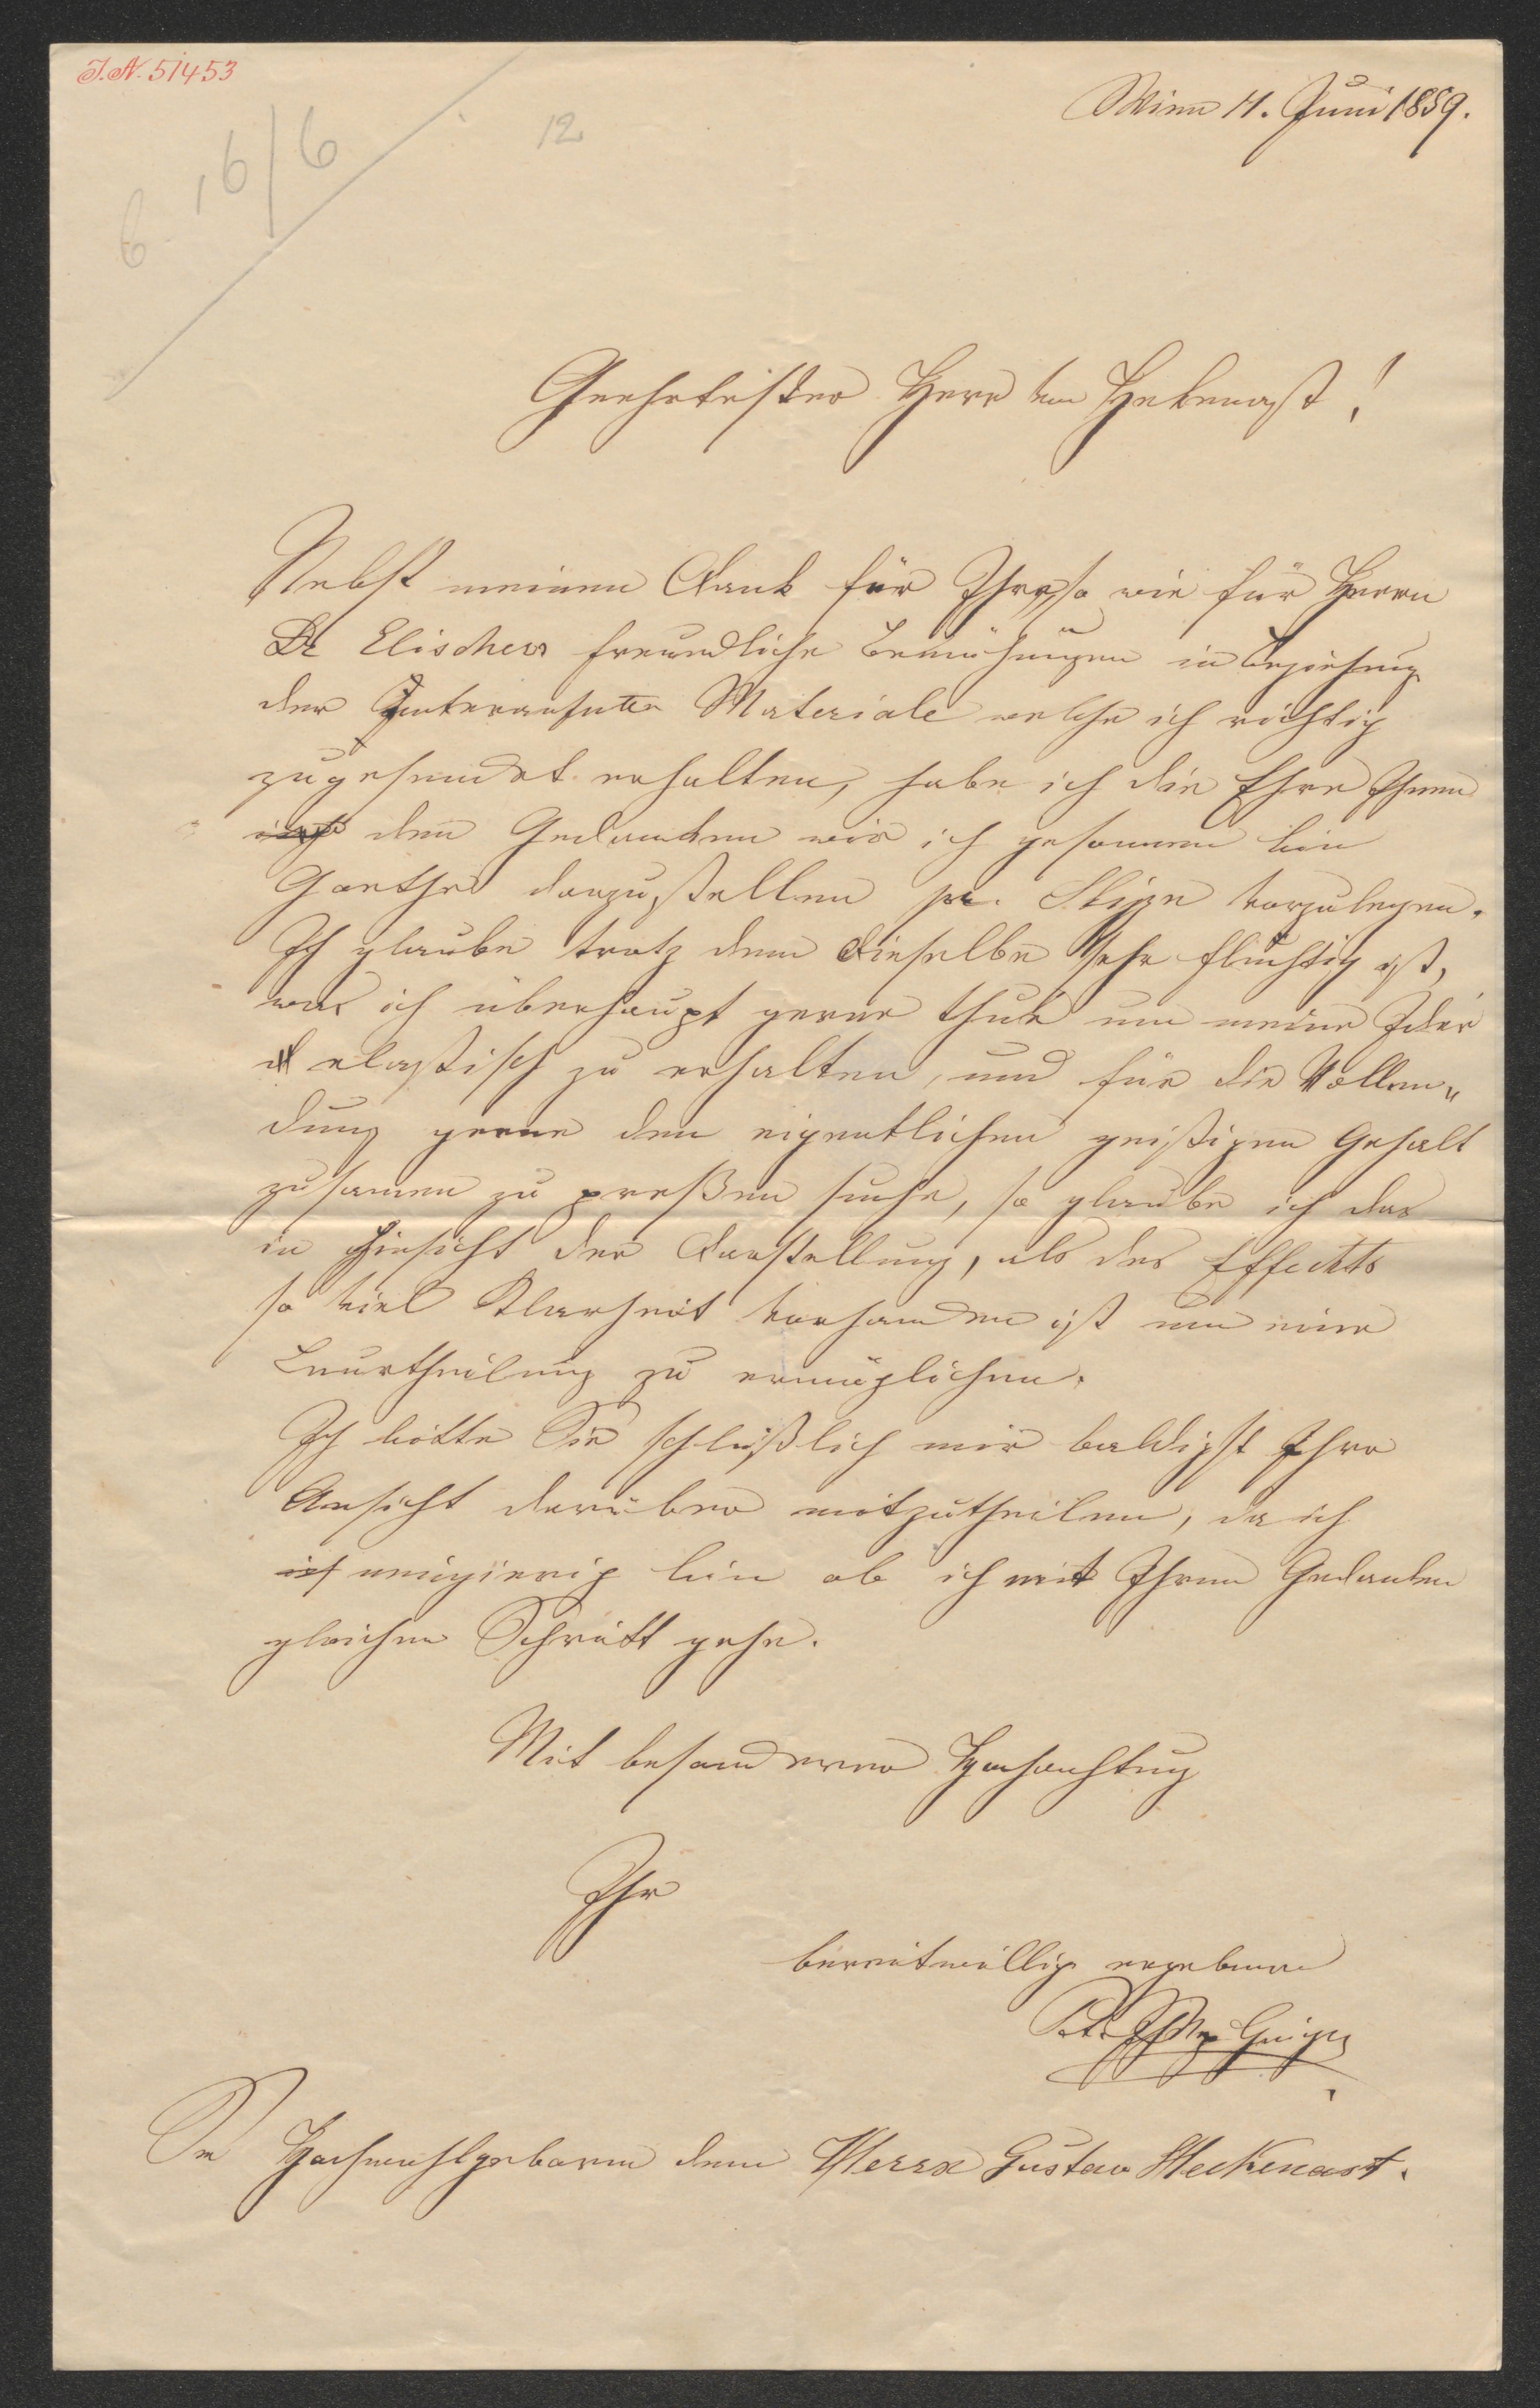 J.N. 51453
Wien 11. Juni 1859.
6. 16/6 12
Geehrtester Herr von Hekenast!
Nebst meinem Dank für Ihre, so wie für Herrn
Dr Elischers freundliche Bemühungen in Beziehung
der Materiale welche ich richtig
zugesendet erhalten, habe ich die Ehre Ihnen
den Gedanken wie ich gesonnen bin
Goethe darzustellen pr. Skize vorzulegen.
Ich glaube trotz dem dieselbe sehr flüchtig ist,
was ich überhaupt gerne thue um meine Idee
elastisch zu erhalten, und für die Vollen„
dung gerne den eigentlichen geistigen Gehalt
zusamen zu preßen suche, so glaube ich das
in Hinsicht der Darstellung, als des Effects
so viel Klarheit vorhanden ist um eine
Beurtheilung zu ermöglichen.
Ich bitte Sie schlüßlich mir baldigst Ihre
Ansicht darüber mitzutheilen, da ich
neugierig bin ob ich mit Ihren Gedanken
gleichen Schritt gehe.
Mit besonderer Hochachtung
Ihr
bereitwillig ergebener
Geiger
Sr Hochwohlgeboren dem Herrn Gustav Heckenast.